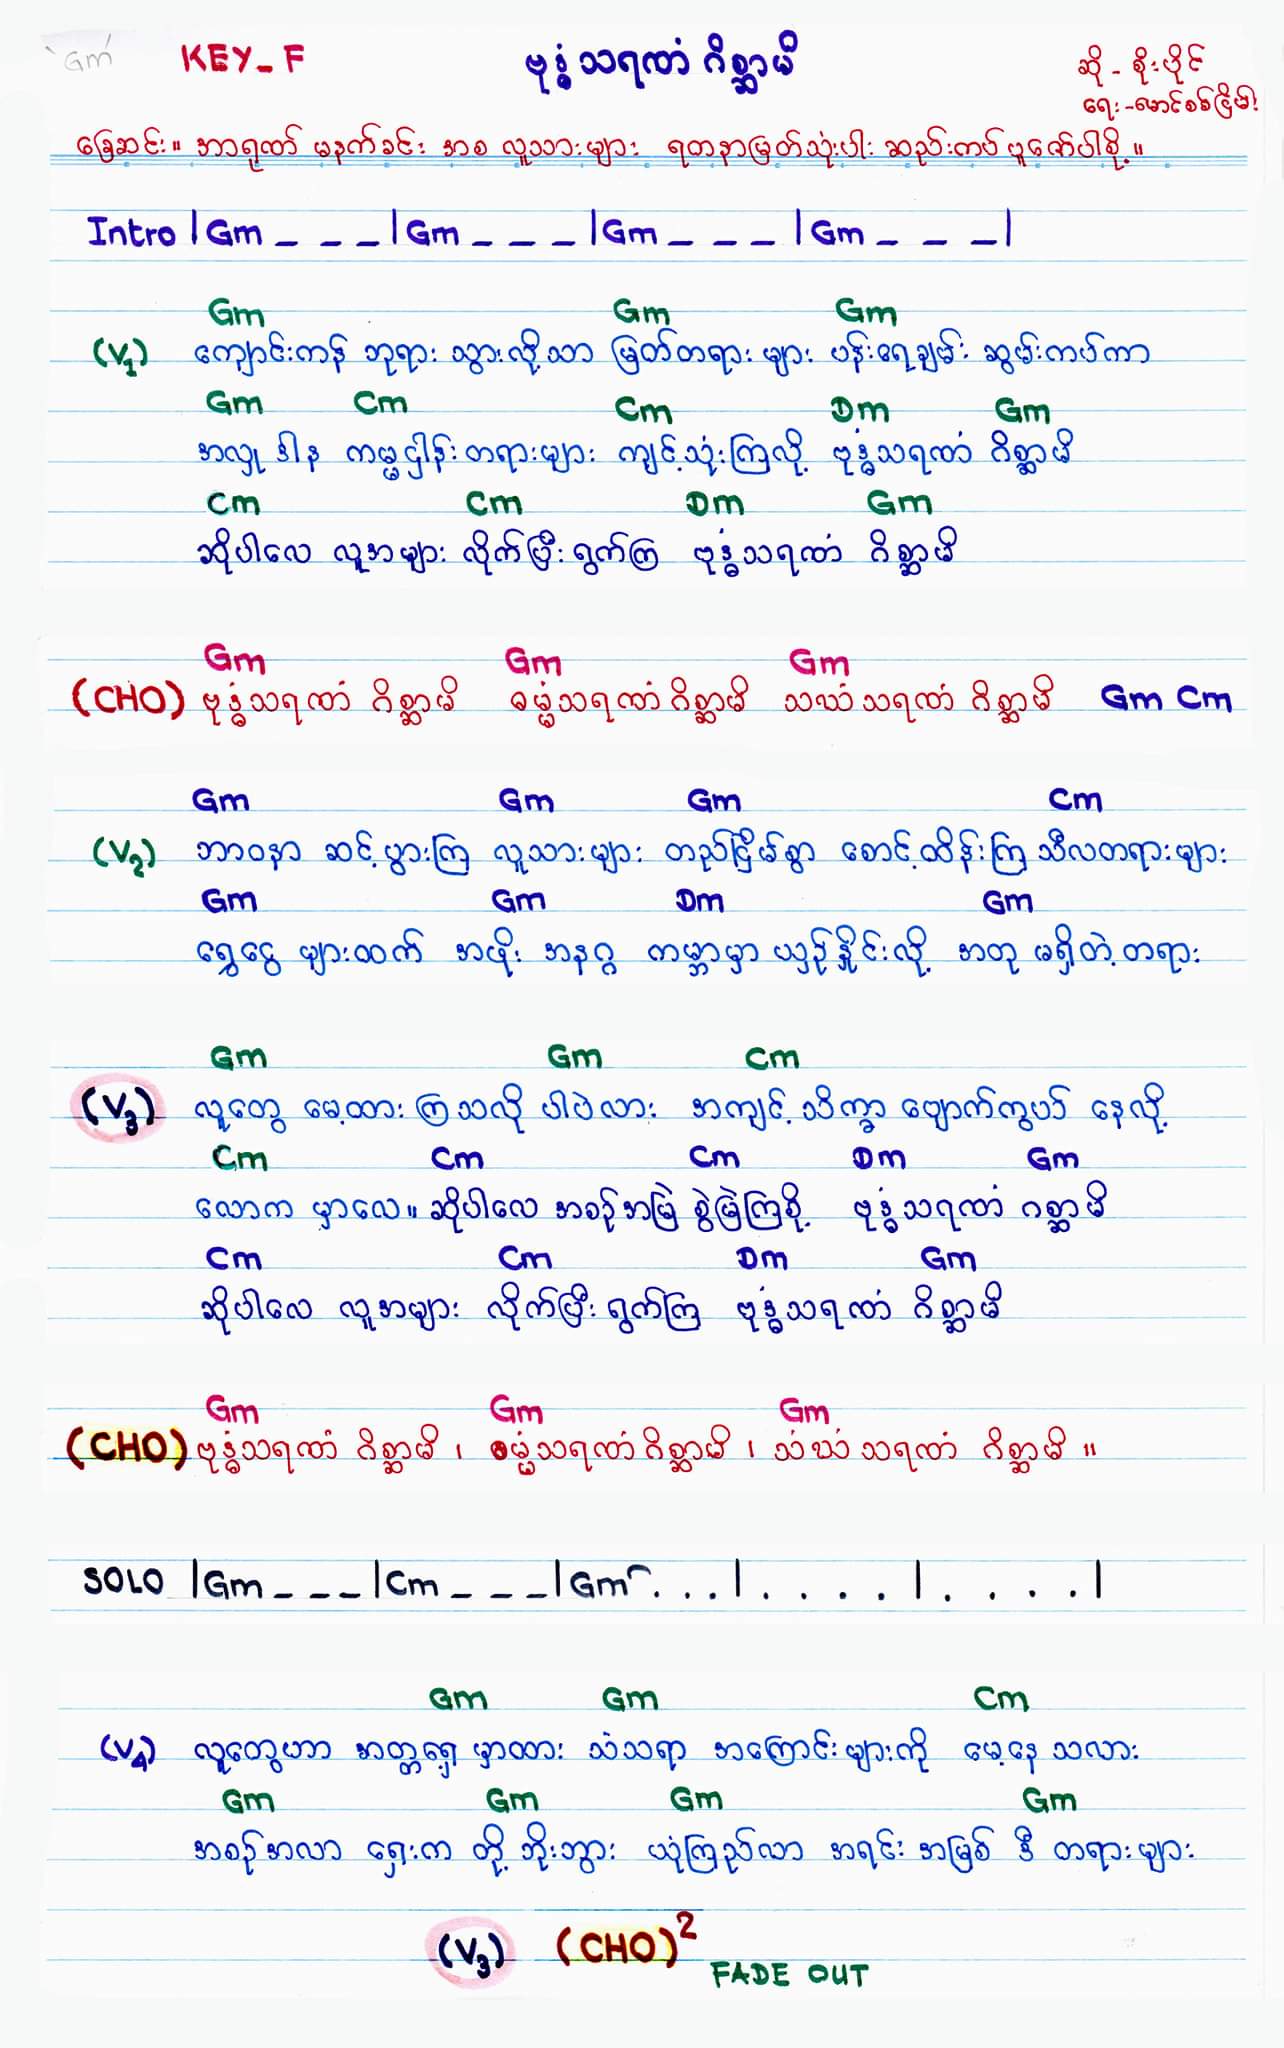 Gm
KEY_F
ဗုဒ္ဓံသရဏံ ဂိစ္ဆာမိ
ဆို - စိုးပိုင်
ရေး - မောင်စစ်ငြိမ်း
ခြေဆင်း။ အာရုဏ် မနက်ခင်း အစ လူသားများ ရတနာမြတ်သုံးပါး ဆည်းကပ် ပူဇော်ပါစို့။
Intro |Gm _ _ _|Gm _ _ _|Gm _ _ _|Gm _ _ _|
Gm Gm Gm
(V1) ကျောင်းကန် ဘုရား သွားလို့သာ မြတ်တရား များ ပန်းရေချမ်း ဆွမ်းကပ်ကာ
Gm Cm Cm Dm Gm
အလှူ ဒါန ကမ္မဋ္ဌါန်းတရားများ ကျင့်သုံးကြလို့ ဗုဒ္ဓံသရဏံ ဂိစ္ဆာမိ
Cm Cm Dm Gm
ဆိုပါလေ လူအများ လိုက်ပြီးရွက်ကြ ဗုဒ္ဓံသရဏံ ဂိစ္ဆာမိ
Gm Gm Gm
(CHO) ဗုဒ္ဓံသရဏံ ဂိစ္ဆာမိ ဓမ္မံသရဏံဂိစ္ဆာမိ သဃံသရဏံ ဂိစ္ဆာမိ Gm Cm
Gm Gm Gm Cm
(V2) ဘာဝနာ ဆင့်ပွားကြ လူသားများ တည်ငြိမ်စွာ စောင့်ထိန်းကြ သီလတရားများ
Gm Gm Dm Gm
ရွှေငွေ များထက် အဖိုး အနဂ္ဂ ကမ္ဘာမှာ ယှဉ်နှိုင်းလို့ အတု မရှိတဲ့တရား
Gm Gm Cm
(V3) လူတွေ မေ့ထား ကြသလို ပါပဲလား အကျင့်သိက္ခာ ပျောက်ကွယ် နေလို့
Cm Cm Cm Dm Gm
လောက မှာလေ။ ဆိုပါလေ အစဉ်အမြဲ စွဲမြဲကြစို့ ဗုဒ္ဓံသရဏံ ဂစ္ဆာမိ
Cm Cm Dm Gm
ဆိုပါလေ လူအများ လိုက်ပြီးရွက်ကြ ဗုဒ္ဓံသရဏံ ဂိစ္ဆာမိ
Gm Gm Gm
(CHO) ဗုဒ္ဓံသရဏံ ဂိစ္ဆာမိ ၊ ဓမ္မံသရဏံဂိစ္ဆာမိ ၊ သံဃံသရဏံ ဂိစ္ဆာမိ ။
SOLO |Gm _ _ _|Cm _ _ _|Gm . . .|. . . .|. . . .|
Gm Gm Cm
(V4) လူတွေဟာ အတ္တရှေ့ မှာထား သံသရာ အကြောင်းများကို မေ့နေ သလား
Gm Gm Gm Gm
အစဉ်အလာ ရှေးက တို့ ဘိုးဘွား ယုံကြည်လာ အရင်း အမြစ် ဒီ တရားများ
(V3) (CHO)2
FADE OUT